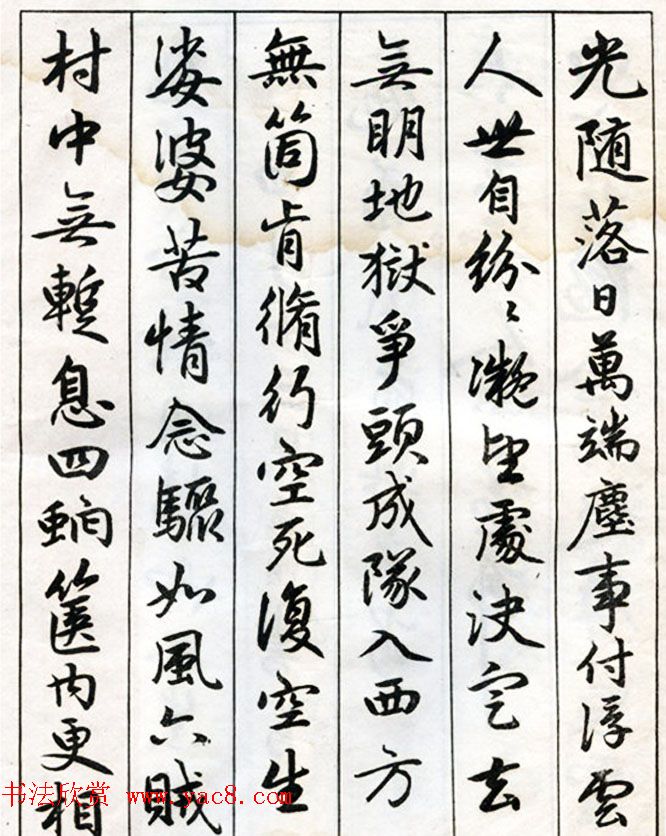 光随落日萬端塵事付浮雲
人世自纷〻凝望處決定去
無明地獄爭頭成隊入西方
無箇肯脩行空死復空生
娑婆苦情念驟如風六賊
村中無暫息四篋内更相
书法欣赏 www.yac8.com